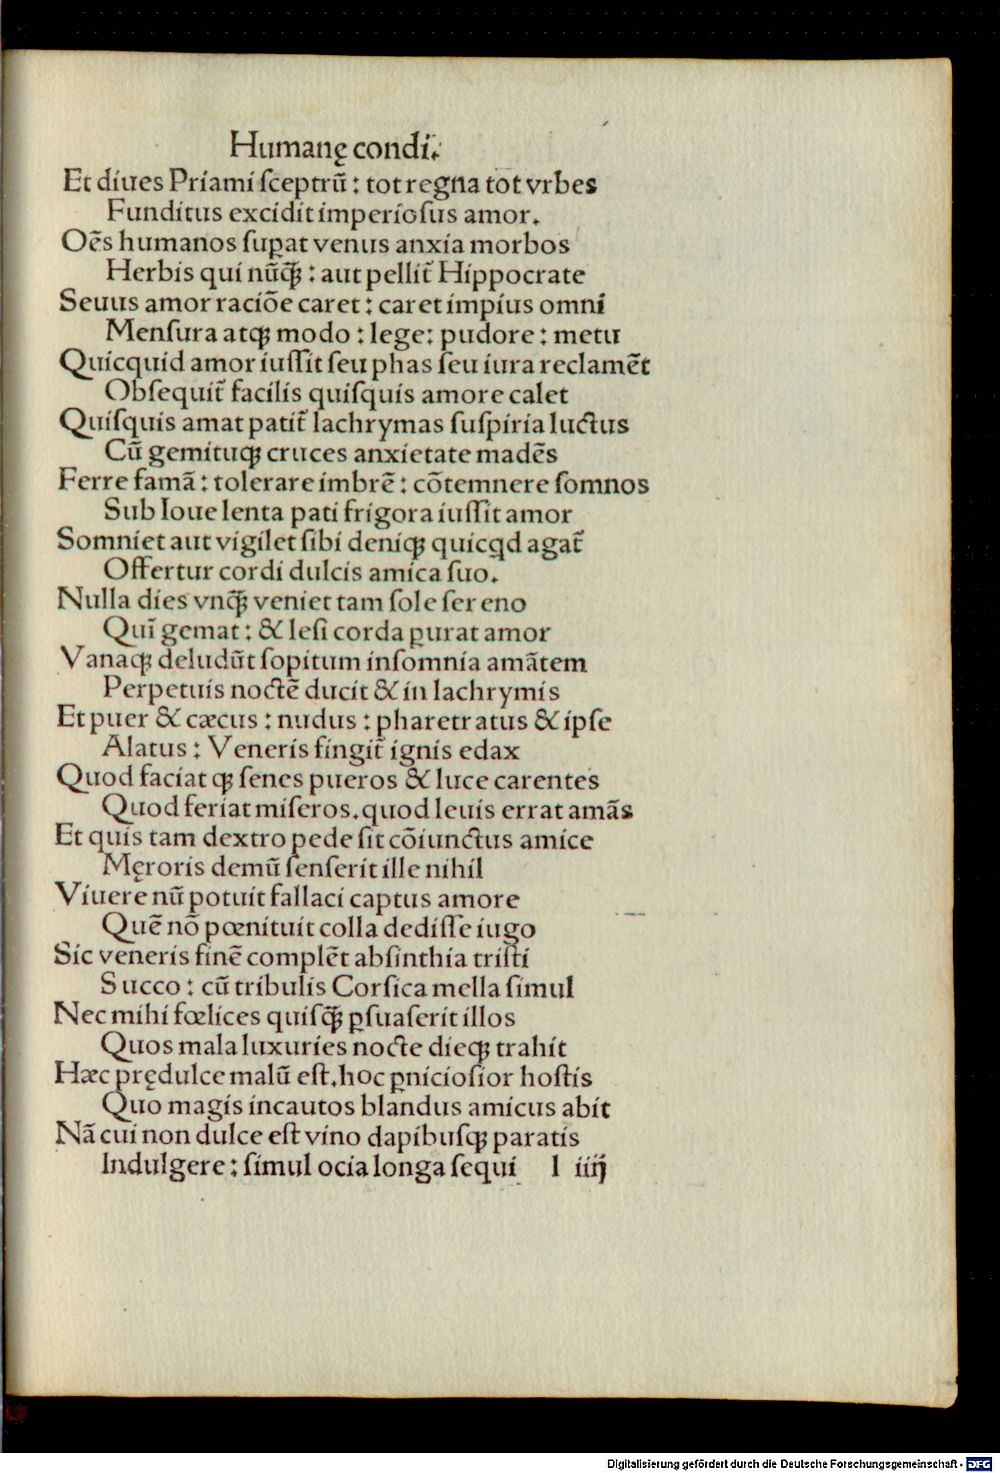 Humanę condi.
Et diues Priami ſceptrū: tot regna tot vrbes
Funditus excidit imperioſus amor.
Oēs humanos ſuꝑat venus anxia morbos
Herbis qui nūꝙ̄: aut pellit̃ Hippocrate
Seuus amor raciōe caret: caret impius omni
Menſura atꝙ modo: lege: pudore: metu
Quicquid amor iuſſit ſeu phas ſeu iura reclamēt
Obſequit̃ facilis quiſquis amore calet
Quiſquis amat patit̃ lachrymas ſuſpiria luctus
Cū gemituꝙ cruces anxietate madēs
Ferre famā: tolerare imbrē: cōtemnere ſomnos
Sub Ioue lenta pati frigora iuſſit amor
Somniet aut vigilet ſibi deniꝙ quicqd agat̃
Offertur cordi dulcis amica ſuo.
Nulla dies vnꝙ̄ veniet tam ſole ſereno
Quī gemat: & leſi corda ꝑurat amor
Vanaꝙ deludūt ſopitum inſomnia amātem
Perpetuis noctē ducit & in lachrymis
Et puer & cæcus: nudus: pharetratus & ipſe
Alatus: Veneris fingit̃ ignis edax
Quod faciat ꝙ ſenes pueros & luce carentes
Quod feriat miſeros. quod leuis errat amās
Et quis tam dextro pede ſit cōiunctus amice
Męroris demū ſenſerit ille nihil
Viuere nū potuit fallaci captus amore
Quē nō pœnituit colla dediſſe iugo
Sic veneris finē complēt abſinthia triſti
Succo: cū tribulis Corſica mella ſimul
Nec mihi fœlices quiſꝙ̄ ꝑſuaſerit illos
Quos mala luxuries nocte dieꝙ trahit
Hæc prędulce malū eſt. hoc ꝑnicioſior hoſtis
Quo magis incautos blandus amicus abit
Nā cui non dulce eſt vino dapibuſꝙ paratis
Indulgere: ſimul ocia longa ſequi l iiij
Digitalisierung gefördert durch die Deutsche Forschungsgemeinschaft - DFG